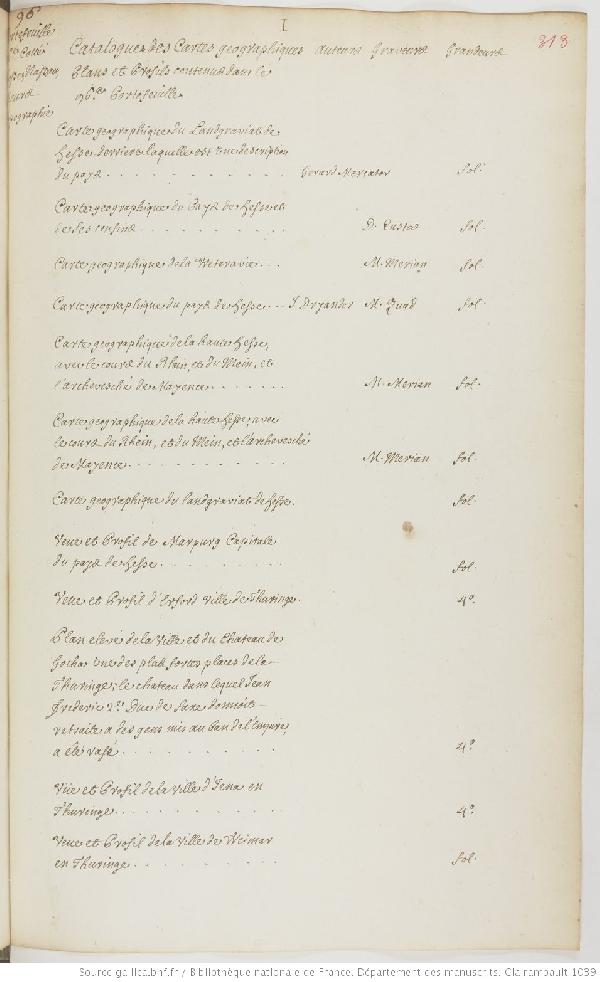 96
I
313
Catalogue des Cartes geographiques auteurs Graveurs Grandeurs
Plans et Profils contenus dans le
96.e Portefeuille
Carte geographique du Landgraviat de
Hesse derriere laquelle est une description
du pays . . . . . . . . . . . Gerard Mercator fol.
Carte geographique du Pays de Hesse et
de ses confins . . . . . . . . . . D. Custos fol.
Carte geographique de la Weteravie . . . M. Merian fol.
Carte geographique du pays de Hesse . . . J. Dryander M. Quad fol.
Carte geographique de la haute Hesse,
avec le cours du Rhein, et du Mein, et
l'archevesché de Mayence . . . . . . . M. Merian fol.
Carte geographique de la haute Hesse, avec
le cours du Rhein, et du Mein, et l'archevesché
de Mayence . . . . . . . . . . M. Merian fol.
Carte geographique du landgraviat de Hesse. fol.
Veue et Profil de Marpurg Capitale
du pays de Hesse . . . . . . . . . fol.
Veue et Profil d'Erford ville de Thuringe. 4°.
Plan elevé de la Ville et du Chateau de
Gotha une des plus fortes places de la
Thuringe; le chateau dans lequel Jean
Frederic Duc de Saxe donnoit
retraite a des gens mis au ban de l'Empire,
a été rasé . . . . . . . . . . 4°.
Vüe et Profil de la Ville d'Jena en
Thuringe . . . . . . . . . . . 4°.
Veue et Profil de la Ville de Weimar
en Thuringe . . . . . . . . . . fol.
Source gallica.bnf.fr / Bibliothèque nationale de France. Département des manuscrits. Clairambault 1039